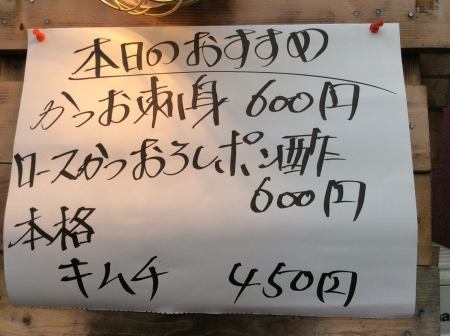 本日のおすすめ
かつお刺身 600円
ロースかつおろしポン酢
600円
本格
キムチ 450円